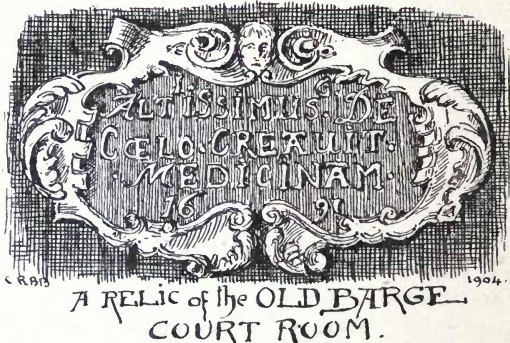 ALTISSIMUS. DE
CŒLO. CREAUIT.
·MEDICINAM·
16 91
CRBB 1904.
A RELIC of the OLD BARGE
COURT ROOM.